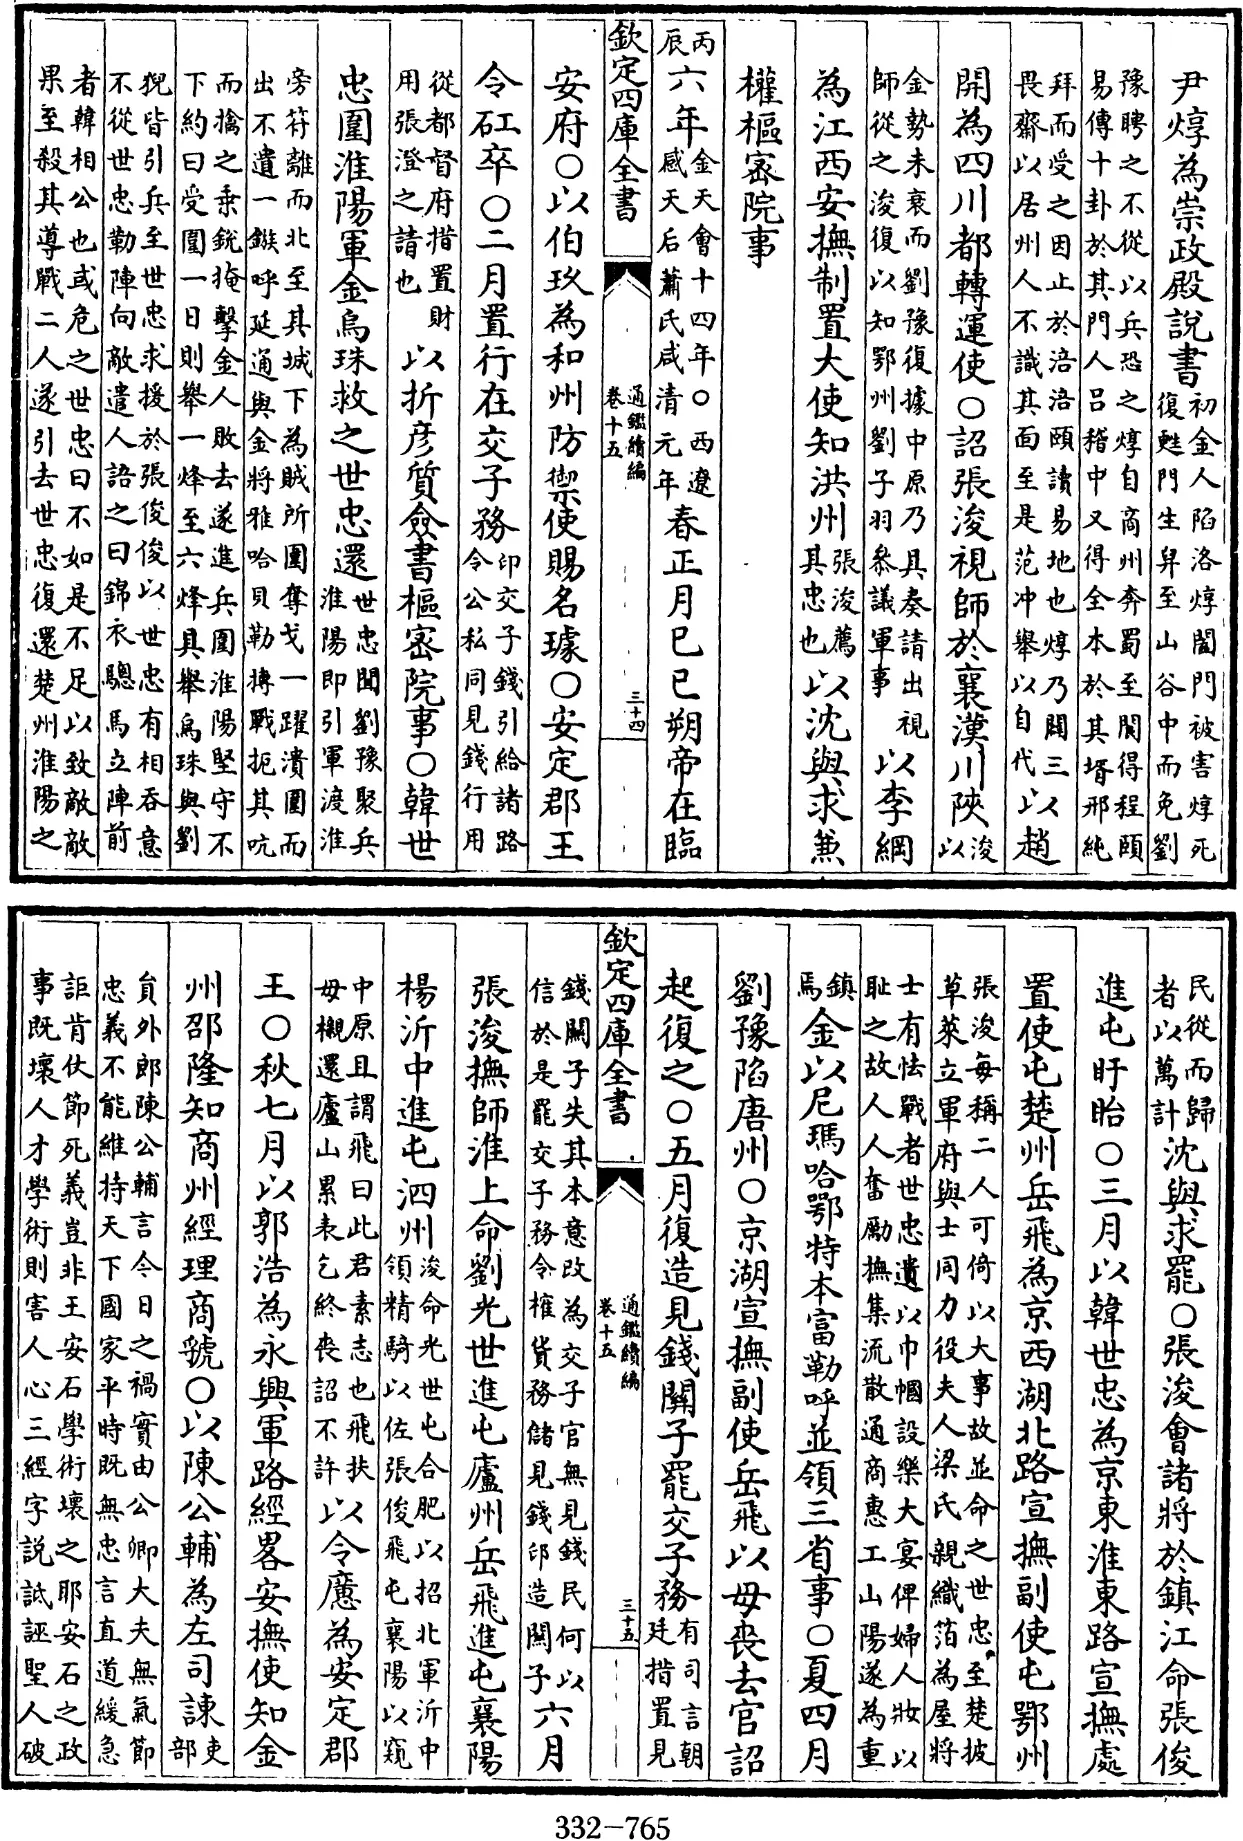 尹焞為崇政殿説書初金人陷洛焞闔門被害焞死復甦門生舁至山谷中而免劉
豫聘之不從以兵恐之焞自商州奔蜀至閬得程頤易傳十卦於其門人吕稽中又得全本於其壻邢純
拜而受之因止於涪涪頤讀易地也焞乃闢三畏齋以居州人不識其面至是范冲舉以自代以趙
開為四川都轉運使〇詔張浚視師於襄漢川陜浚以
金勢未衰而劉豫復據中原乃具奏請出視師從之浚復以知鄂州劉子羽叅議軍事以李綱
為江西安撫制置大使知洪州張浚薦其忠也以沈與求兼
權樞密院事
丙辰六年金天會十四年〇西遼感天后蕭氏咸清元年春正月己巳朔帝在臨
欽定四庫全書
通鑑續編
卷十五
三十四
安府〇以伯玖為和州防禦使賜名璩〇安定郡王
令矼卒〇二月置行在交子務印交子錢引給諸路令公私同見錢行用
從都督府措置財用張澄之請也以折彦質僉書樞密院事〇韓世
忠圍淮陽軍金烏珠救之世忠還世忠聞劉豫聚兵淮陽即引軍渡淮
旁符離而北至其城下為賊所圍奪戈一躍潰圍而出不遺一鏃呼延通與金將雅哈貝勒搏戰扼其吭
而擒之乗銳掩擊金人敗去遂進兵圍淮陽堅守不下約曰受圍一日則舉一烽至六烽具舉烏珠與劉
猊皆引兵至世忠求援於張俊俊以世忠有相吞意不從世忠勒陣向敵遣人語之曰錦衣驄馬立陣前
者韓相公也或危之世忠曰不如是不足以致敵敵果至殺其導戰二人遂引去世忠復還楚州淮陽之
民從而歸者以萬計沈與求罷〇張浚會諸將於鎮江命張俊
進屯盱眙〇三月以韓世忠為京東淮東路宣撫處
置使屯楚州岳飛為京西湖北路宣撫副使屯鄂州
張浚每稱二人可倚以大事故並命之世忠至楚披草萊立軍府與士同力役夫人梁氏親織箔為屋將
士有怯戰者世忠遺以巾幗設樂大宴俾婦人妝以恥之故人人奮勵撫集流散通商惠工山陽遂為重
鎮焉金以尼瑪哈鄂特本富勒呼並領三省事〇夏四月
劉豫陷唐州〇京湖宣撫副使岳飛以母喪去官詔
起復之〇五月復造見錢關子罷交子務有司言朝廷措置見
欽定四庫全書
通鑑續編
卷十五
三十五
錢關子失其本意改為交子官無見錢民何以信於是罷交子務令榷貨務儲見錢印造關子六月
張浚撫師淮上命劉光世進屯廬州岳飛進屯襄陽
楊沂中進屯泗州浚命光世屯合肥以招北軍沂中領精騎以佐張俊飛屯襄陽以窺
中原且謂飛曰此君素志也飛扶母櫬還廬山累表乞終喪詔不許以令懬為安定郡
王〇秋七月以郭浩為永興軍路經畧安撫使知金
州邵隆知商州經理商虢〇以陳公輔為左司諫吏部
員外郎陳公輔言今日之禍實由公卿大夫無氣節忠義不能維持天下國家平時既無忠言直道緩急
詎肯仗節死義豈非王安石學術壞之耶安石之政事既壞人才學術則害人心三經字説詆誣聖人破
332-765